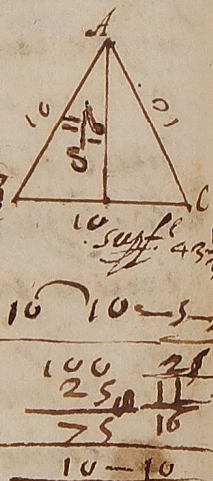 A
10 10
8 11/16
C
10
supf.e 43
10 10 5
100
25
75
11
16
10 — 10